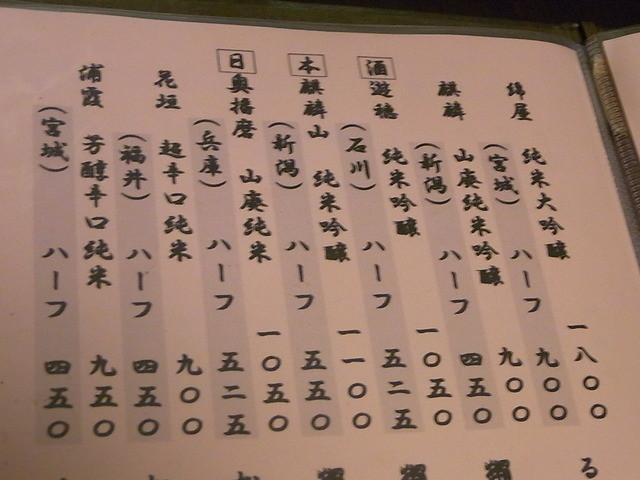 日本酒
綿屋 純米大吟醸 一八〇〇
(宮城) ハーフ 九〇〇
麒麟 山廃純米吟醸 九〇〇
(新潟) ハーフ 四五〇
遊穂 純米吟醸 一〇五〇
(石川) ハーフ 五二五
麒麟山 純米吟醸 一一〇〇
(新潟) ハーフ 五五〇
奥播磨 山廃純米 一〇五〇
(兵庫) ハーフ 五二五
花垣 超辛口純米 九〇〇
(福井) ハーフ 四五〇
浦霞 芳醇辛口純米 九五〇
(宮城) ハーフ 四五〇
る